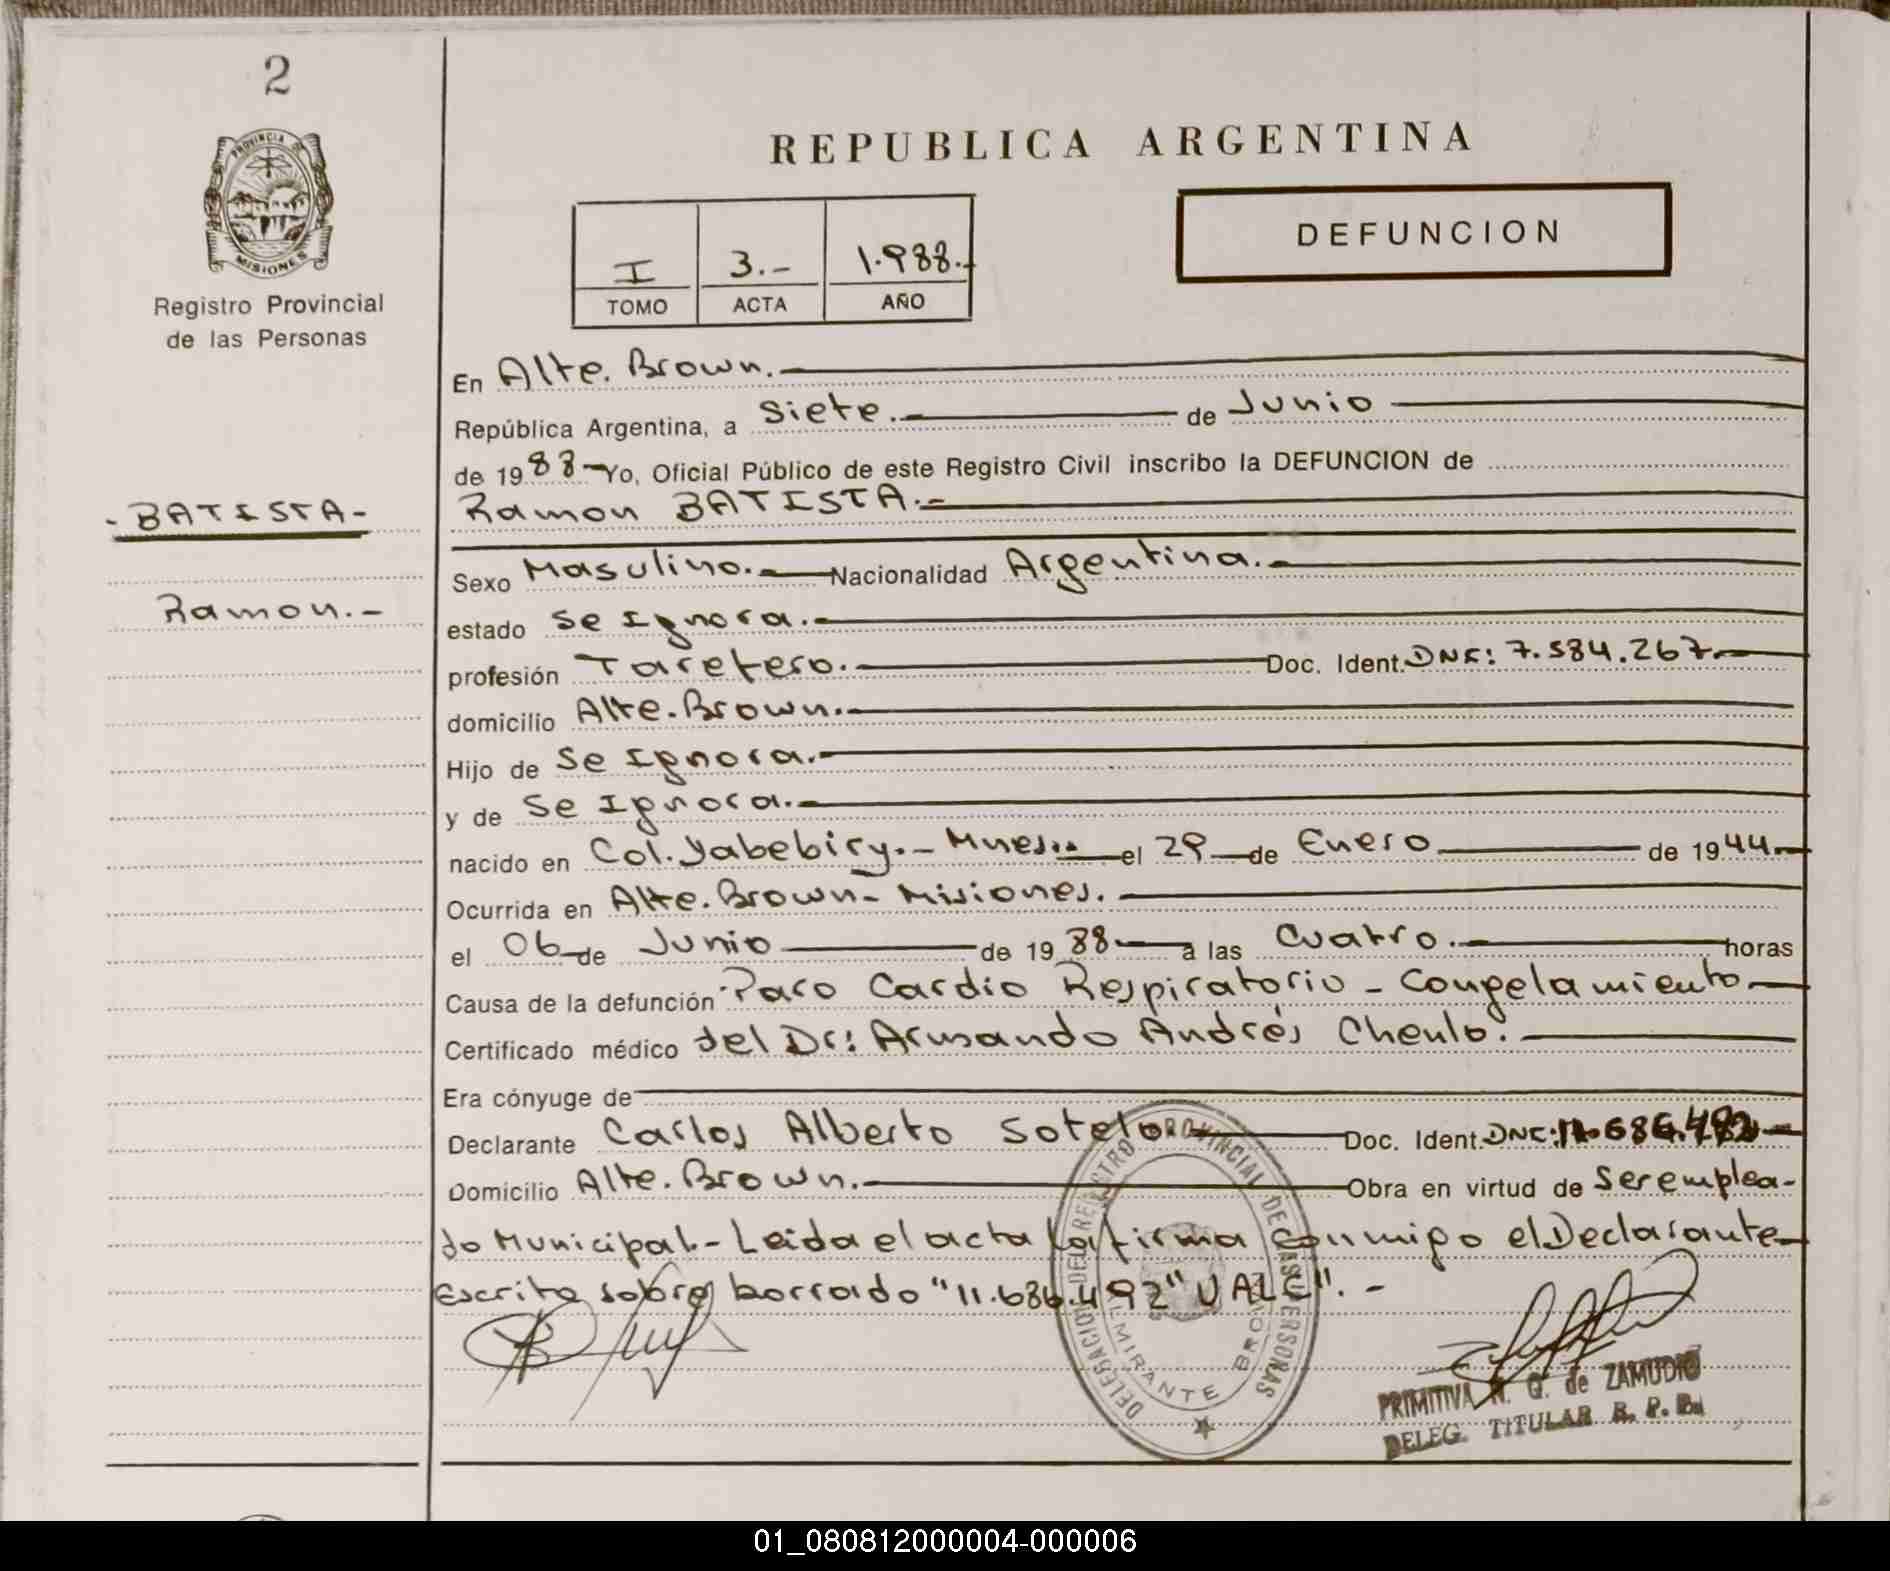 2
PROVINCIA DE
MISIONES
Registro Provincial
de las Personas
REPUBLICA ARGENTINA
I 3.- 1.988.-
TOMO ACTA AÑO
DEFUNCION
En Alte. Brown.
República Argentina, a Siete. de Junio
de 1988 Yo, Oficial Público de este Registro Civil inscribo la DEFUNCION de
-BATISTA-
Ramon BATISTA.-
Ramon.-
Sexo Masulino. Nacionalidad Argentina.
estado Se Ignora.
profesión Taretero. Doc. Ident. DNI: 7.584.267
domicilio Alte. Brown.
Hijo de Se Ignora.
y de Se Ignora.
nacido en Col. Yabebiry.- Mnes.. el 29 de Enero de 1944
Ocurrida en Alte. Brown- Misiones.
el 06 de Junio de 1988 a las Cuatro. horas
Causa de la defunción Paro Cardio Respiratorio - Congelamiento
Certificado médico del Dr: Armando Andrés Chenlo.
Era cónyuge de
Declarante Carlos Alberto Sotelo Doc. Ident. DNI: 11.686.492
Domicilio Alte. Brown. Obra en virtud de Ser emplea-
do Municipal.- Leida el acta la firma conmigo el Declarante
Escrito sobre borrado "11.686.492" VALE".-
DELEGACION DEL REGISTRO PROVINCIAL DE LAS PERSONAS
ALMIRANTE BROWN
PRIMITIVA N. G. de ZAMUDIO
DELEG. TITULAR R. P. P.
01_080812000004-000006